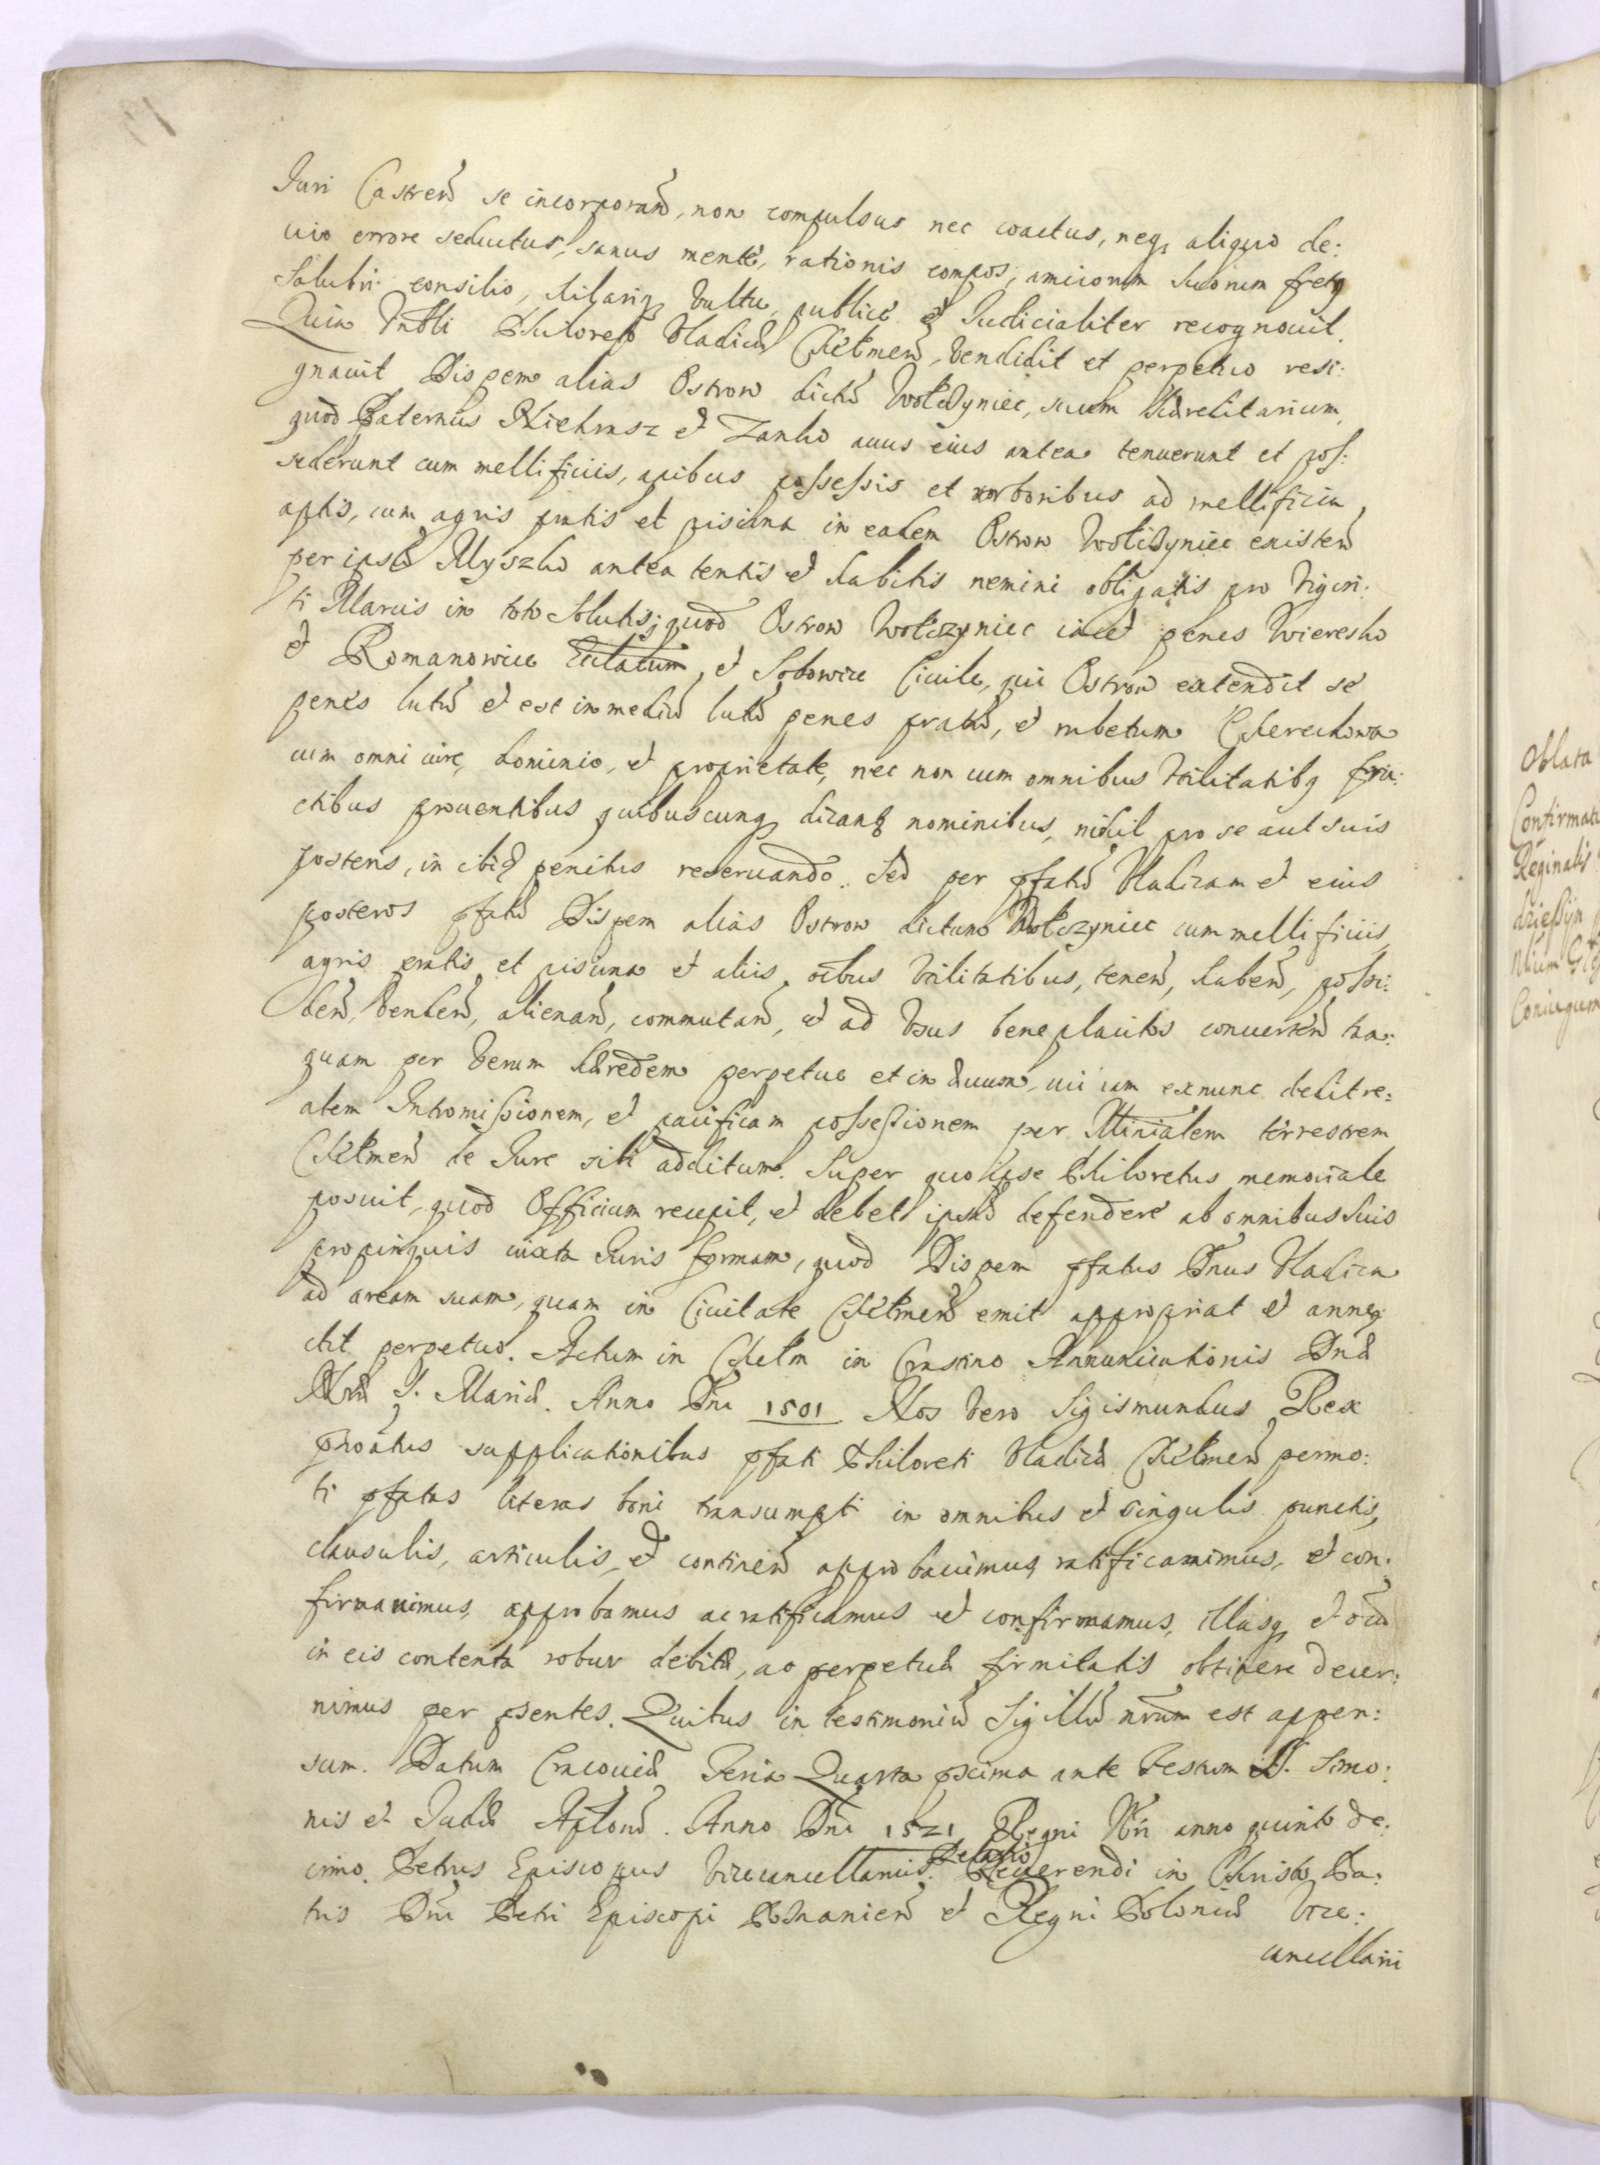 Juri Castreñ se incorporañ, non compulsus nec coactus, neq; aliquo de:
vio errore seductus, sanus mente, rationis compos, amicorum suorum fretq
salubri consilio, hilariq; vultu, publice et Judicialiter recognovit.
Quia Philoreto Vladicæ Chełmeñ, vendidit et perpetuo resi:
gnavit Dispem alias Ostrow dictũ Wołczyniec, suum hæreditarium,
quod Paternus et Zanko avus eius antea tenuerunt et pos:
sederunt cum mellificiis, apibus possessis et arboribus ad mellificia
aptis, cum agris pratis et piscina in eadem Ostrow Wołczyniec existeñ
per ipsũ Myszko antea tentis et habitis nemini obligatis pro viginti:
ti Marcis in toto solutis; quod Ostrow Wołczyniec iacet penes Wieresko
et Romanowice, et Sobowice Civile, qui Ostrow extendit se
penes lutũ et est in mediũ lutũ penes pratũ, et rubetum
cum omni iure, dominio, et proprietate, nec non cum omnibus utilitatibq fru:
ctibus proventibus quibuscunq; dicant nominibus, nihil pro se aut suis
posteris, in ibid penitus reservando. Sed per pfatũ Vladicam et eius
posteros pfatũ Dispem alias Ostrow dictum Wołczyniec cum mellificiis,
agris pratis et piscina et aliis oĩbus utilitatibus, teneñ, habeñ, possi:
deñ, vendeñ, alienañ, commutañ, et ad usus beneplacitos converteñ tan:
quam per verum hæredem perpetuo et in ævum, cui iam exnunc dedit re:
alem Intromissionem, et pacificam possessionem per Minĩalem terrestrem
Chełmeñ de Jure sibi additum. Super quo ipse Philoretus memoriale
posuit, quod Officium recepit, et debet ipsũ defendere ab omnibus suis
propinquis iuxta Juris formam, quod Dispem pfatus Dnus Vladica
ad aream suam, quam in Civitate Chełmeñ emit appropriat et anneq
ctit perpetuo. Actum in Chełm in Crastino Annunciationis Dnæ
Nræ S. Mariæ. Anno Dni 1501 Nos vero Sigismundus Rex
supplicationibus pfati Philoreti Vladicæ Chełmeñ permo:
ti pfatas literas boni transumpti in omnibus et singulis punctis,
clausulis, articulis, et contineñ approbavimus ratificavimus, et con:
firmavimus, approbamus ac ratificamus et confirmamus, illasq; et oĩa
in eis contenta robur debitæ, ac perpetuæ firmitatis obtinere decer:
nimus per psentes. Quibus in testimoniũ Sigillũ nrũm est appen:
sum. Datum Cracoviæ Feria Quarta pxima ante Festum S. Simo:
nis et Judæ Aptorũ. Anno Dni 1521 Regni Nri anno quinto de:
cimo. Petrus Episcopus Vicecancellarius. Relatio Reverendi in Christo Pa:
tris Dni Petri Episcopi Posnanieñ et Regni Poloniæ Vice:
cancellarii
Oblata
Confirmati
Reginalis
Coniugum